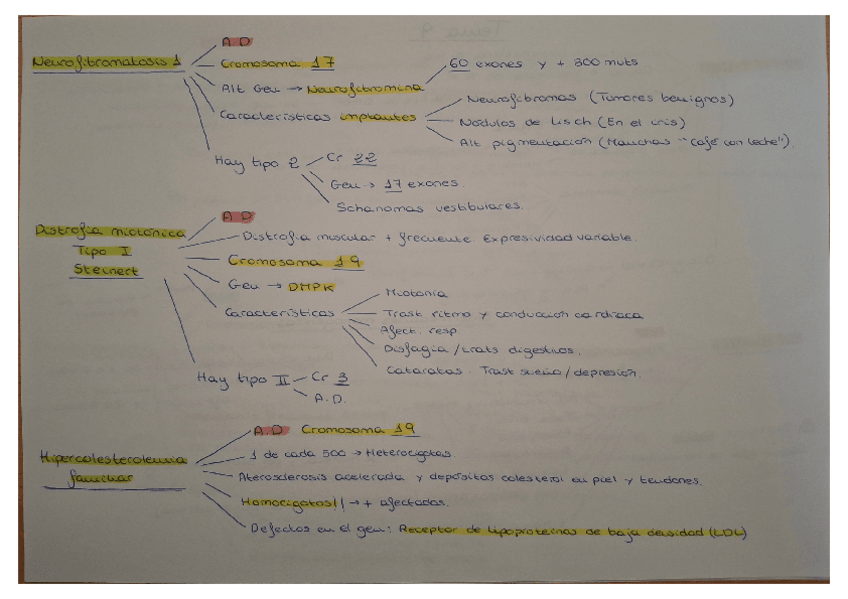 A.D
Neurofibromatosis 1
Cromosoma 17
60 exones y + 300 muts
Alt Gen → Neurofibromina
Neurofibromas (Tumores benignos)
Características imptantes
Nódulos de Lisch (En el iris)
Alt pigmentación (Manchas "Café con leche").
Hay tipo 2
Cr 22
Gen → 17 exones.
Schanomas vestibulares.
A.D
Distrofia miotónica
Tipo I
Steinert
Distrofia muscular + frecuente Expresividad variable.
Cromosoma 19
Gen → DMPK
Características
Miotonía
Trast ritmo y conducción cardiaca
Afect. resp.
Disfagia / trats digestivos.
Cataratas. Trast sueño / depresión.
Hay tipo II
Cr 3
A.D.
A.D Cromosoma 19
1 de cada 500 → Heterocigotos.
Hipercolesterolemia
familiar
Aterosclerosis acelerada y depósitos colesterol en piel y tendones.
Homocigotos!! → + afectados.
Defectos en el gen: Receptor de lipoproteínas de baja densidad (LDL)